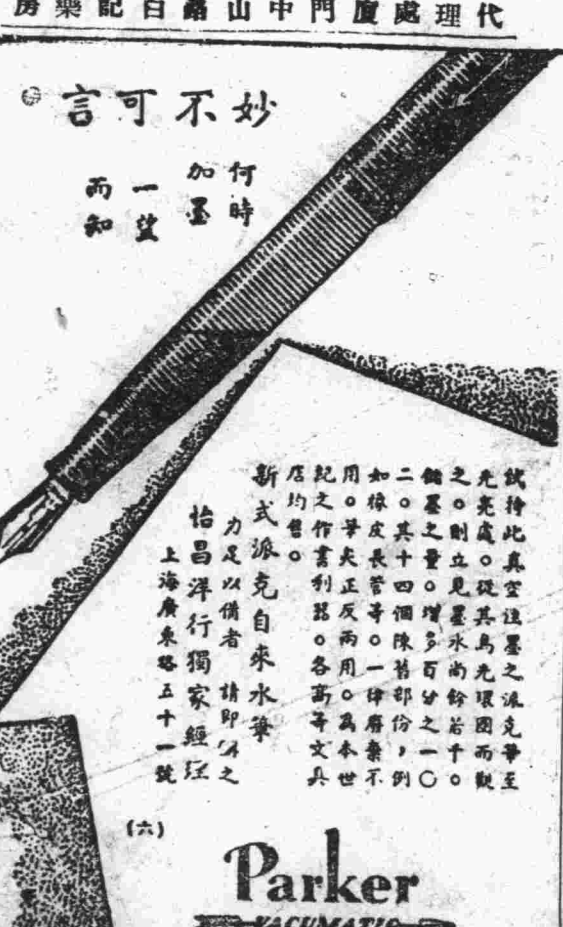 代理處廈門中山路白記藥房
妙不可言
何時
加墨
一望
而知
試持此真空注墨之派克筆至
光亮處。從其烏光環圈而觀
之。則立見墨水尚餘若干。
儲墨之量。增多百分之一〇
二。其十四個陳舊部份，例
如橡皮長管等。一律廢棄不
用。筆尖正反兩用。為本世
紀之作書利器。各高等文具
店均售。
新式派克自來水筆
力足以備者 請即備之
怡昌洋行獨家經理
上海廣東路五十一號
(六)
Parker
VACUMATIC